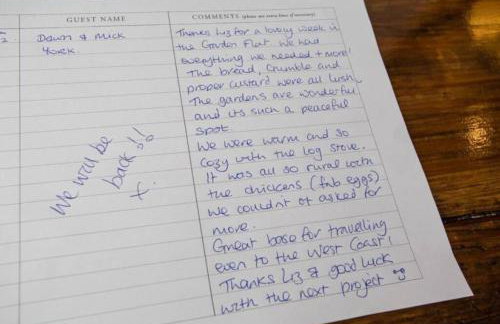 GUEST NAME
COMMENTS (please use extra lines if necessary)
Dawn & Mick
York
Thanks Liz for a lovely week in
the Garden Flat we had
everything we needed + more!
The bread, crumble and
proper custard were all lush
The gardens are wonderful
and its such a peaceful
spot
We were warm and so
cozy with the log stove.
It was all so rural with
the chickens (fab eggs)
We couldnt of asked for
more.
Great base for travelling
even to the West Coast!
Thanks Liz & good luck
with the next project
We will be
back!!
x.